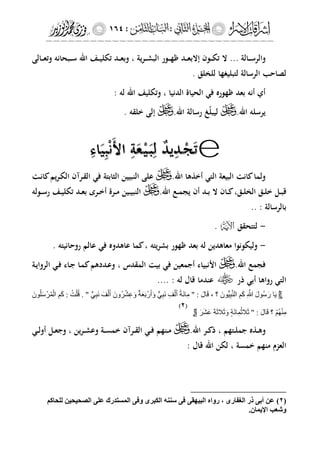 إشراقات الإسراء الجزء الثانى : البيان الثامن : ١٦٤
والرسالة ... لا تكون إلا بعد ظهور البشرية ، وبعد تكليف الله سبحانه وتعالى
لصاحب الرسالة لتبليغها للخلق .
أي أنه بعد ظهوره في الحياة الدنيا ، وتكليف الله له :
يرسله الله ليبلّغ رسالة الله إلى خلقه .
تَجْدِيدٌ لِبَيْعَةِ الْأَنْبِيَاءِ
ولما كانت البيعة التي أخذها الله على النبيين الثابتة في القرآن الكريم كانت
قبل خلق الخلق، كان لا بد أن يجمع الله النبيين مرة أخرى بعد تكليف رسوله
بالرسالة : ..
- لتتحقق .
- وليكونوا معاهدين له بعد ظهور بشريته ، كما عاهدوه في عالم روحانيته .
فجمع الله الأنبياء أجمعين في بيت المقدس ، وعددهم كما جاء في الرواية
التي رواها أبي ذر عندما قال له : ....
يَا رَسُولَ اللَّهِ كَمِ النَّبِيُّونَ ؟ ، قَالَ : " مِائَةُ أَلْفِ نَبِيٍّ وَأَرْبَعَةٌ وَعِشْرُونَ أَلْفَ نَبِيٍّ " ، قُلْتُ : كَمِ الْمُرْسَلُونَ
مِنْهُمْ ؟ قَالَ : " ثَلَاثُمِائَةٍ وَثَلَاثَةَ عَشَرَ (٢)
وهذه جملتهم ، ذكر الله منهم في القرآن خمسة وعشرين ، وجعل أولي
العزم منهم خمسة ، لكن الله قال :
(٢) عن أبى ذر الغفارى ، رواه البيهقى فى سننه الكبرى وفى المستدرك على الصحيحين للحاكم
وشعب الإيمان.